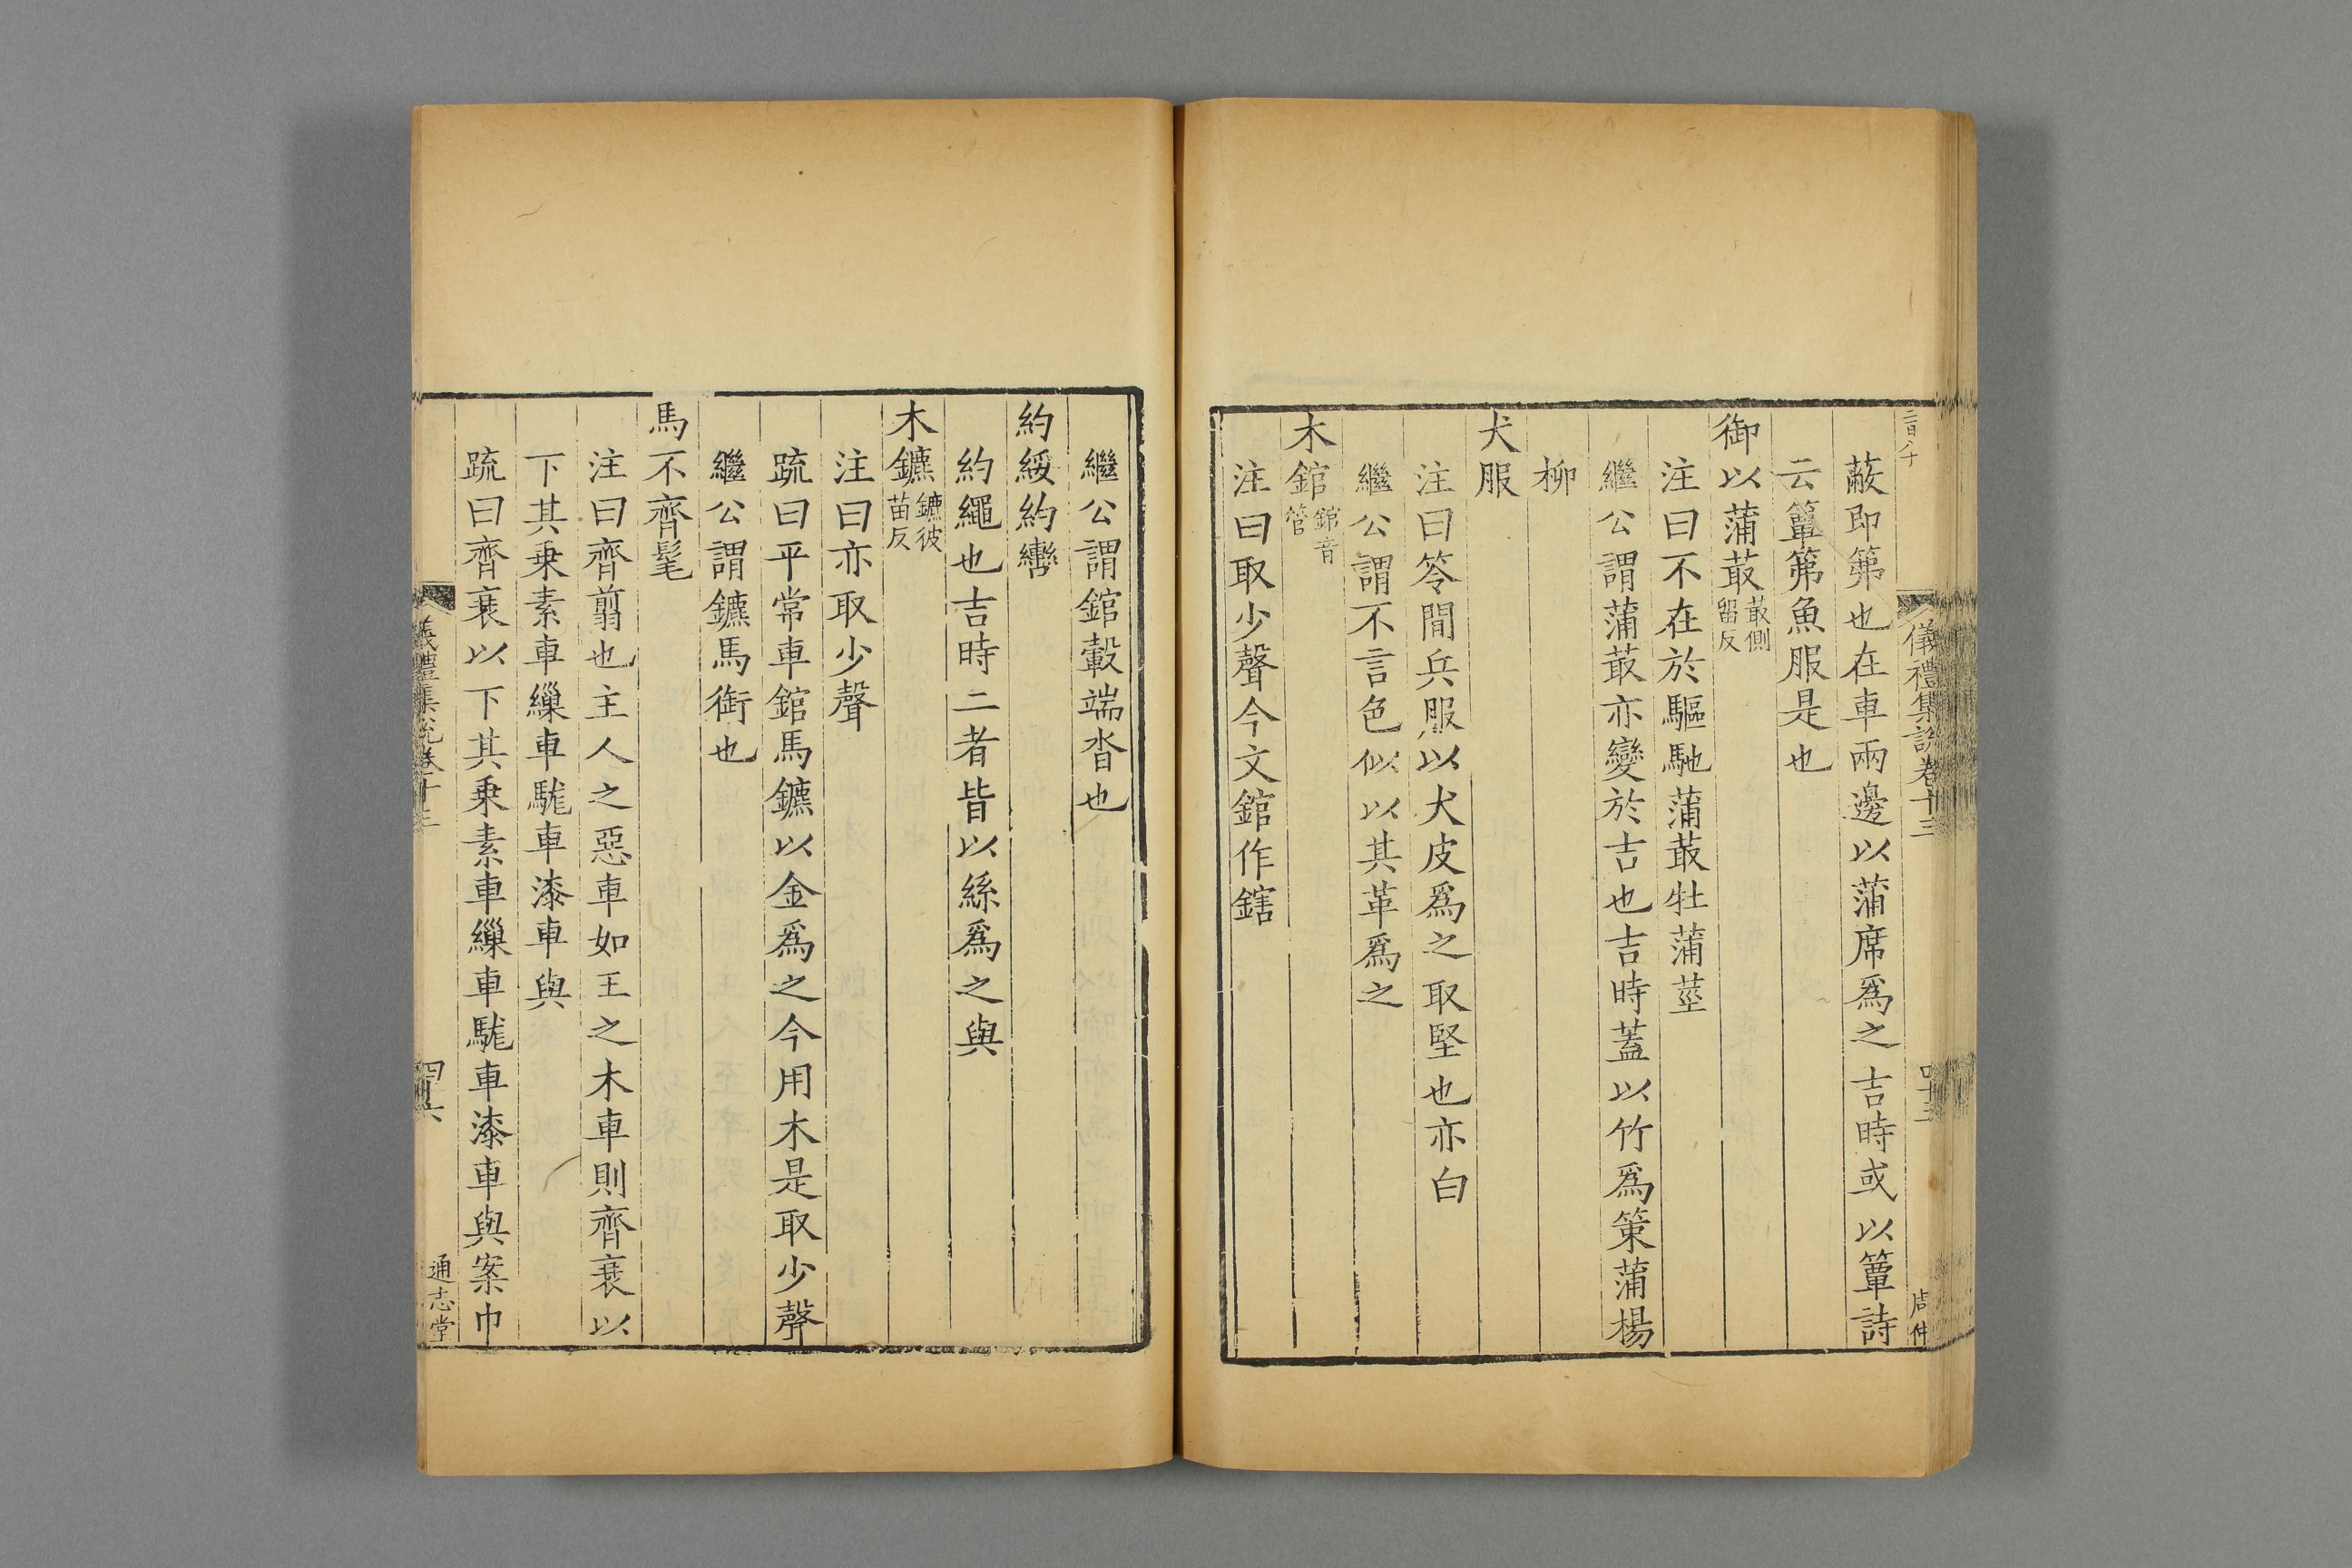 儀禮集說卷十三
周仲
蔽即笰也在車兩邊以蒲席爲之吉時或以簟詩
云簟笰魚服是也
御以蒲菆菆側留反
注曰不在於驅馳蒲菆牡蒲莖
繼公謂蒲菆亦變於吉也吉時蓋以竹爲策蒲楊
柳
犬服
注曰笭間兵服以犬皮爲之取堅也亦白
繼公謂不言色似以其革爲之
木錧錧音管
注曰取少聲今文錧作鎋
繼公謂錧轂端沓也
約綏約轡
約繩也吉時二者皆以絲爲之與
木鑣鑣彼苗反
注曰亦取少聲
疏曰平常車錧馬鑣以金爲之今用木是取少聲
繼公謂鑣馬銜也
馬不齊髦
注曰齊翦也主人之惡車如王之木車則齊衰以
下其乗素車繅車駹車漆車與
疏曰齊衰以下其乗素車繅車駹車漆車與案巾
儀禮集說卷十三
通志堂